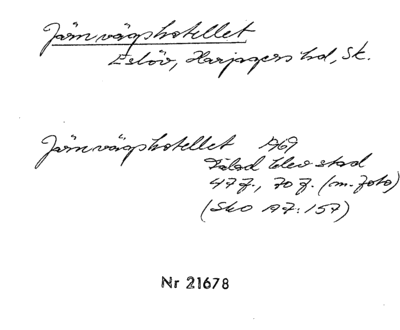 Järnvägshotellet
Eslöv, Harjagers hd, Sk.
Järnvägshotellet 1969
blev stad
47 f., 70 f. (m. foto)
(Sko A7:157)
Nr 21678